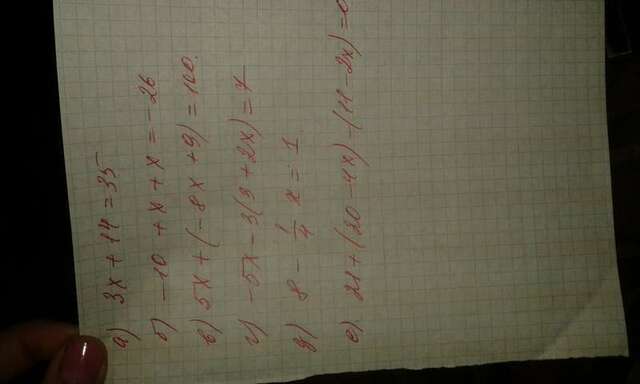 а) 3x + 14 = 35
б) -10 + x + x = -26
в) 5x + (-8x + 9) = 100.
г) -5x - 3(3 + 2x) = 7
д) 8 - 1/4 x = 1
е) 21 + (20 - 4x) - (11 - 2x) = 0